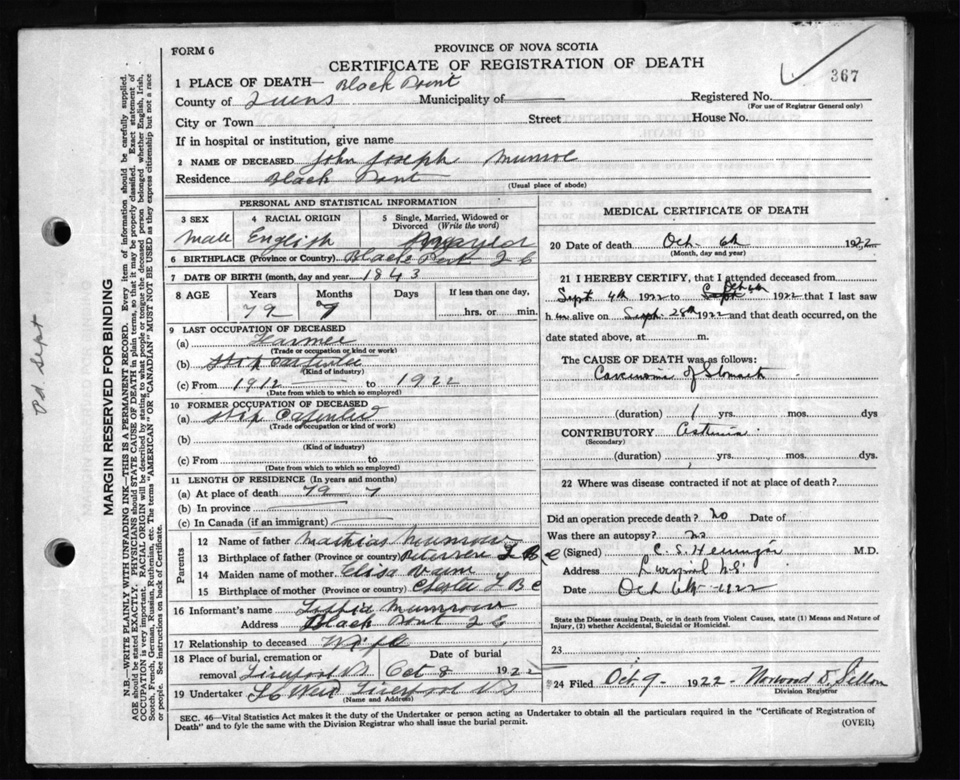 FORM 6
PROVINCE OF NOVA SCOTIA
CERTIFICATE OF REGISTRATION OF DEATH
367
1 PLACE OF DEATH— Black Point
County of Quens Municipality of —
Registered No.
(For use of Registrar General only)
City or Town Street House No.
If in hospital or institution, give name
2 NAME OF DECEASED John Joseph Munroe
Residence Black Point
(Usual place of abode)
PERSONAL AND STATISTICAL INFORMATION
3 SEX
Male
4 RACIAL ORIGIN
English
5 Single, Married, Widowed or Divorced (Write the word)
6 BIRTHPLACE (Province or Country) Black Point Q C
7 DATE OF BIRTH (month, day and year) 1843
8 AGE Years Months Days If less than one day,
79 7 hrs. or min.
9 LAST OCCUPATION OF DECEASED
(a) Farmer
(Trade or occupation or kind of work)
(b) Ship Carpenter
(Kind of industry)
(c) From 1912 — to 1922
(Date from which to which so employed)
10 FORMER OCCUPATION OF DECEASED
(a) Ship
(Trade or occupation or kind of work)
(b)
(Kind of industry)
(c) From to
(Date from which to which so employed)
11 LENGTH OF RESIDENCE (In years and months)
(a) At place of death 79 7
(b) In province
(c) In Canada (if an immigrant)
Parents
12 Name of father Mathias
13 Birthplace of father (Province or country)
14 Maiden name of mother Elisa
15 Birthplace of mother (Province or country) Chester L B C
16 Informant's name
Address Black Point Q C
17 Relationship to deceased Wife
18 Place of burial, cremation or removal Date of burial
Liverpool N.S. Oct 8 1922
19 Undertaker Liverpool N S
(Name and Address)
MEDICAL CERTIFICATE OF DEATH
20 Date of death Oct. 6th 1922
(Month, day and year)
21 I HEREBY CERTIFY, that I attended deceased from
Sept 4th 1922 to 1922 that I last saw
h im alive on Sept. 28th 1922 and that death occurred, on the
date stated above, at m.
The CAUSE OF DEATH was as follows:
Carcinoma of Stomach
(duration) 1 yrs. mos. dys
CONTRIBUTORY
(Secondary)
(duration) yrs. mos. dys.
22 Where was disease contracted if not at place of death?
Did an operation precede death? No Date of
Was there an autopsy? no
(Signed) M.D.
Address Liverpool N.S.
Date Oct 6th 1922
State the Disease causing Death, or in death from Violent Causes, state (1) Means and Nature of Injury, (2) whether Accidental, Suicidal or Homicidal.
23
24 Filed Oct. 9 - 1922 -
Division Registrar
SEC. 46—Vital Statistics Act makes it the duty of the Undertaker or person acting as Undertaker to obtain all the particulars required in the "Certificate of Registration of
Death" and to fyle the same with the Division Registrar who shall issue the burial permit.
(OVER)
MARGIN RESERVED FOR BINDING
N.B.—WRITE PLAINLY WITH UNFADING INK—THIS IS A PERMANENT RECORD. Every item of information should be carefully supplied.
AGE should be stated EXACTLY. PHYSICIANS should STATE CAUSE OF DEATH in plain terms, so that it may be properly classified. Exact statement of
OCCUPATION is very important. RACIAL ORIGIN will be described by stating to what people or tongue the deceased person belonged whether English, Irish,
Scotch, French, German, Russian, Ruthenian, etc. The terms "AMERICAN" or "CANADIAN" MUST NOT BE USED as they express citizenship but not a race
or people. See instructions on back of Certificate.
Sept